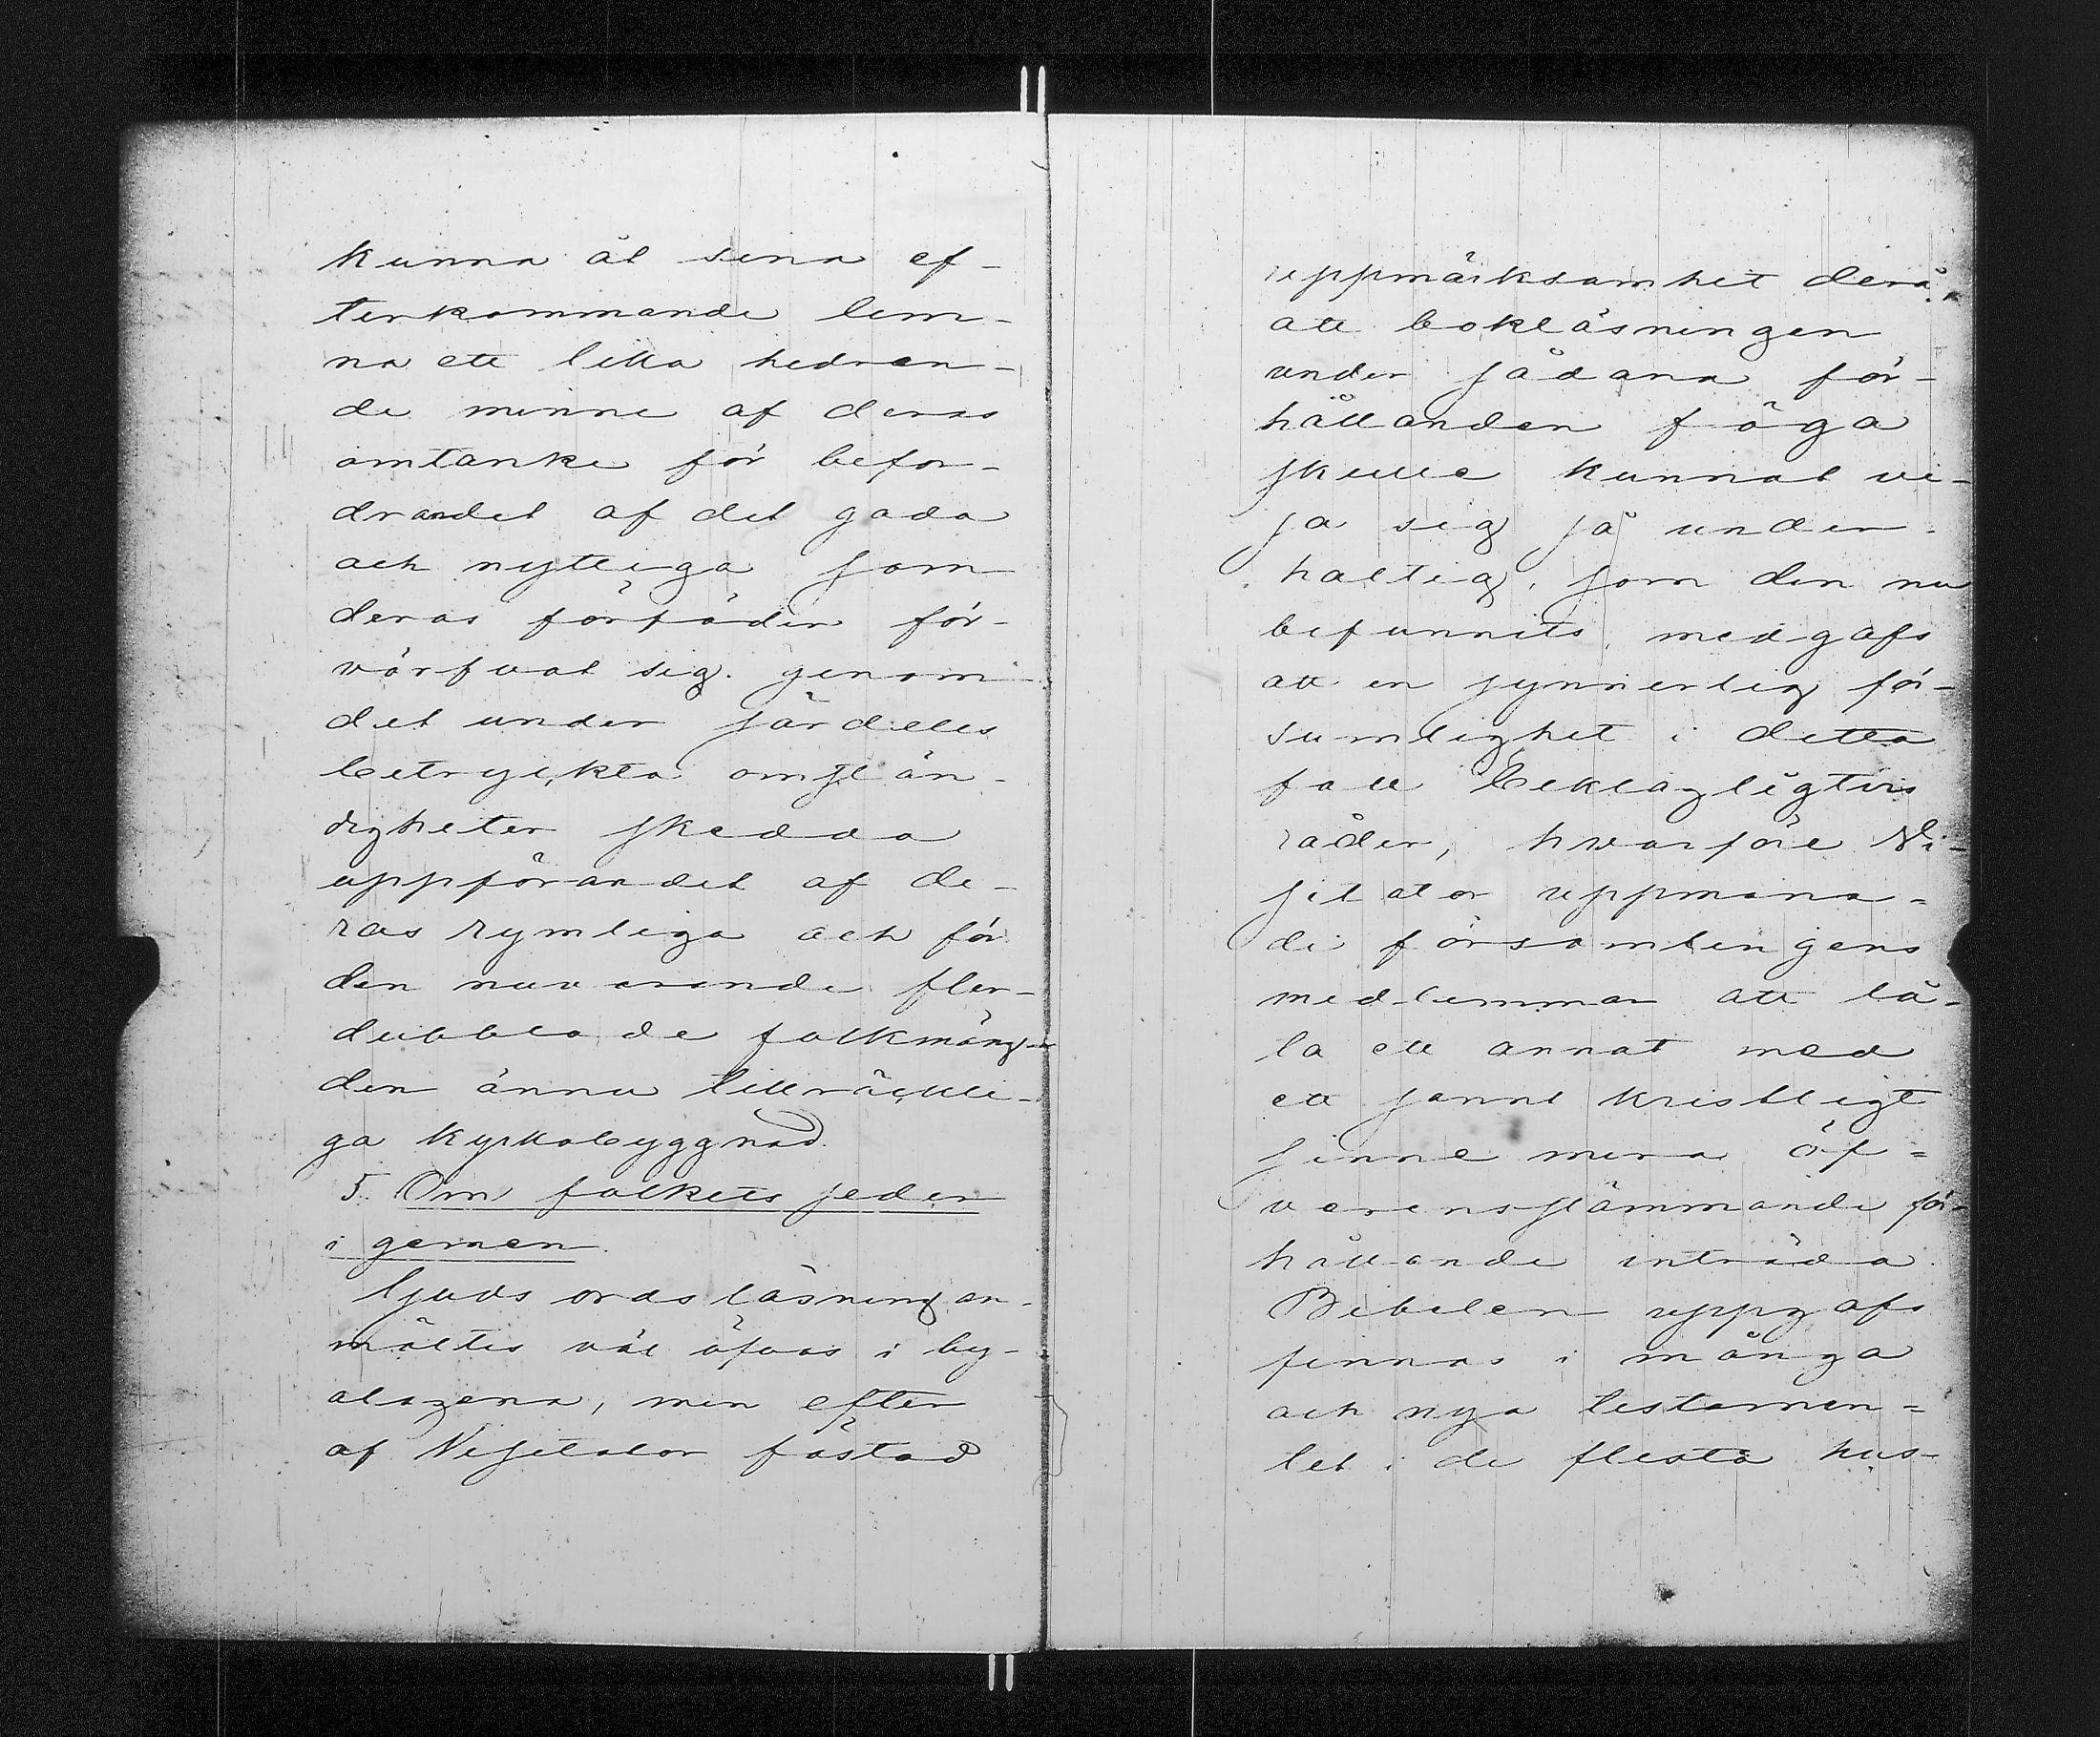 kunna åt sina ef-
terkommande lem-
na ett lika hedran-
de minne af deras
omtanke för befor-
drandet af det goda
och nyttiga som
deras förfäder för-
värfvat sig. genom
det under särdeles
betryckta omstän-
digheter skedda
uppförandet af de-
ras rymliga och för
den nuvarande fler-
dubblade folkmäng-
den ännu tillräckli-
ga kyrkobyggnad.
5. Om folkets seder
i gemen.
Gudsords läsning an-
mältes väl öfvas i by-
alagena, men efter
af Visitator fästad
uppmärksamhet derå,
att bokläsningen
under sådana för-
hållanden föga
skulle kunnat vi-
sa sig så under-
haltig, som den nu
befunnits, medgafs
att en synnerlig för-
sumlighet i detta
fall beklagligtvis
råder, hvarföre Vi-
sitator uppmana-
de församlingens
medlemmar att lå-
ta ett annat med
ett sannt kristligt
sinne mera öf-
verensstämmande för-
hållande inträda.
Bibelen uppgafs
finnas i många
och nya testamen-
tet i de flesta hus-